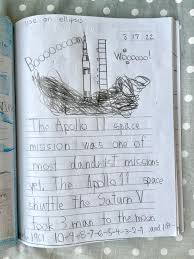 use an ellipsis
3 17 22
Roooooooooom
Wooooooo
The Apollo 11 space
mission was one of
most danduist missions
yet. The Apollo 11 space
shuttle the Saturn V
Took 3 man to the moon
10-9-8-7-6-5-4-3-2-1